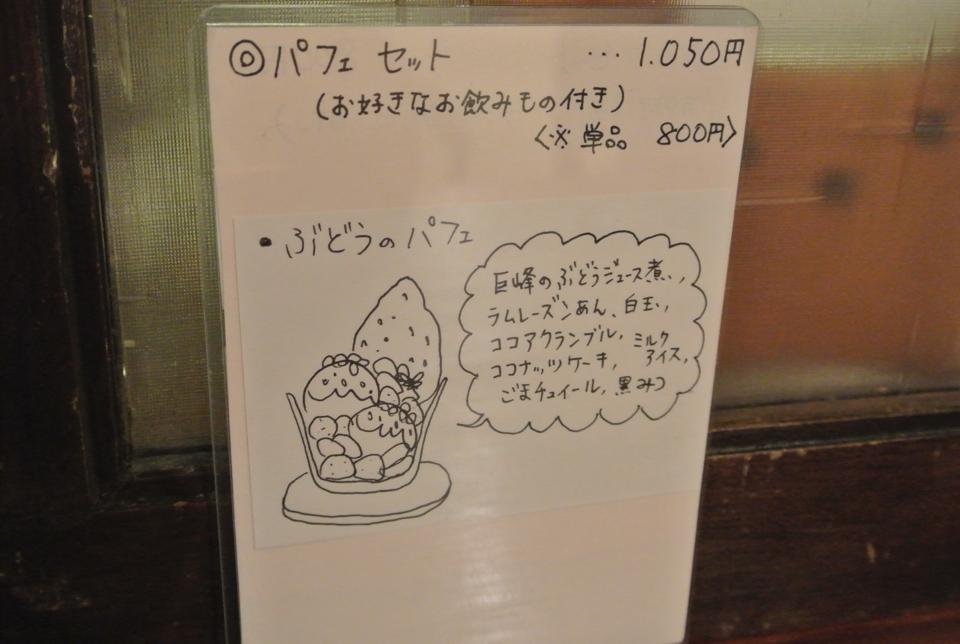 ◎パフェ セット ... 1.050円
(お好きなお飲みもの付き)
〈※ 単品 800円〉
• ぶどうの パフェ
巨峰のぶどうジュース煮、
ラムレーズンあん、白玉、
ココアクランブル、ミルクアイス、
ココナッツケーキ、
ごまチュイール、黒みつ